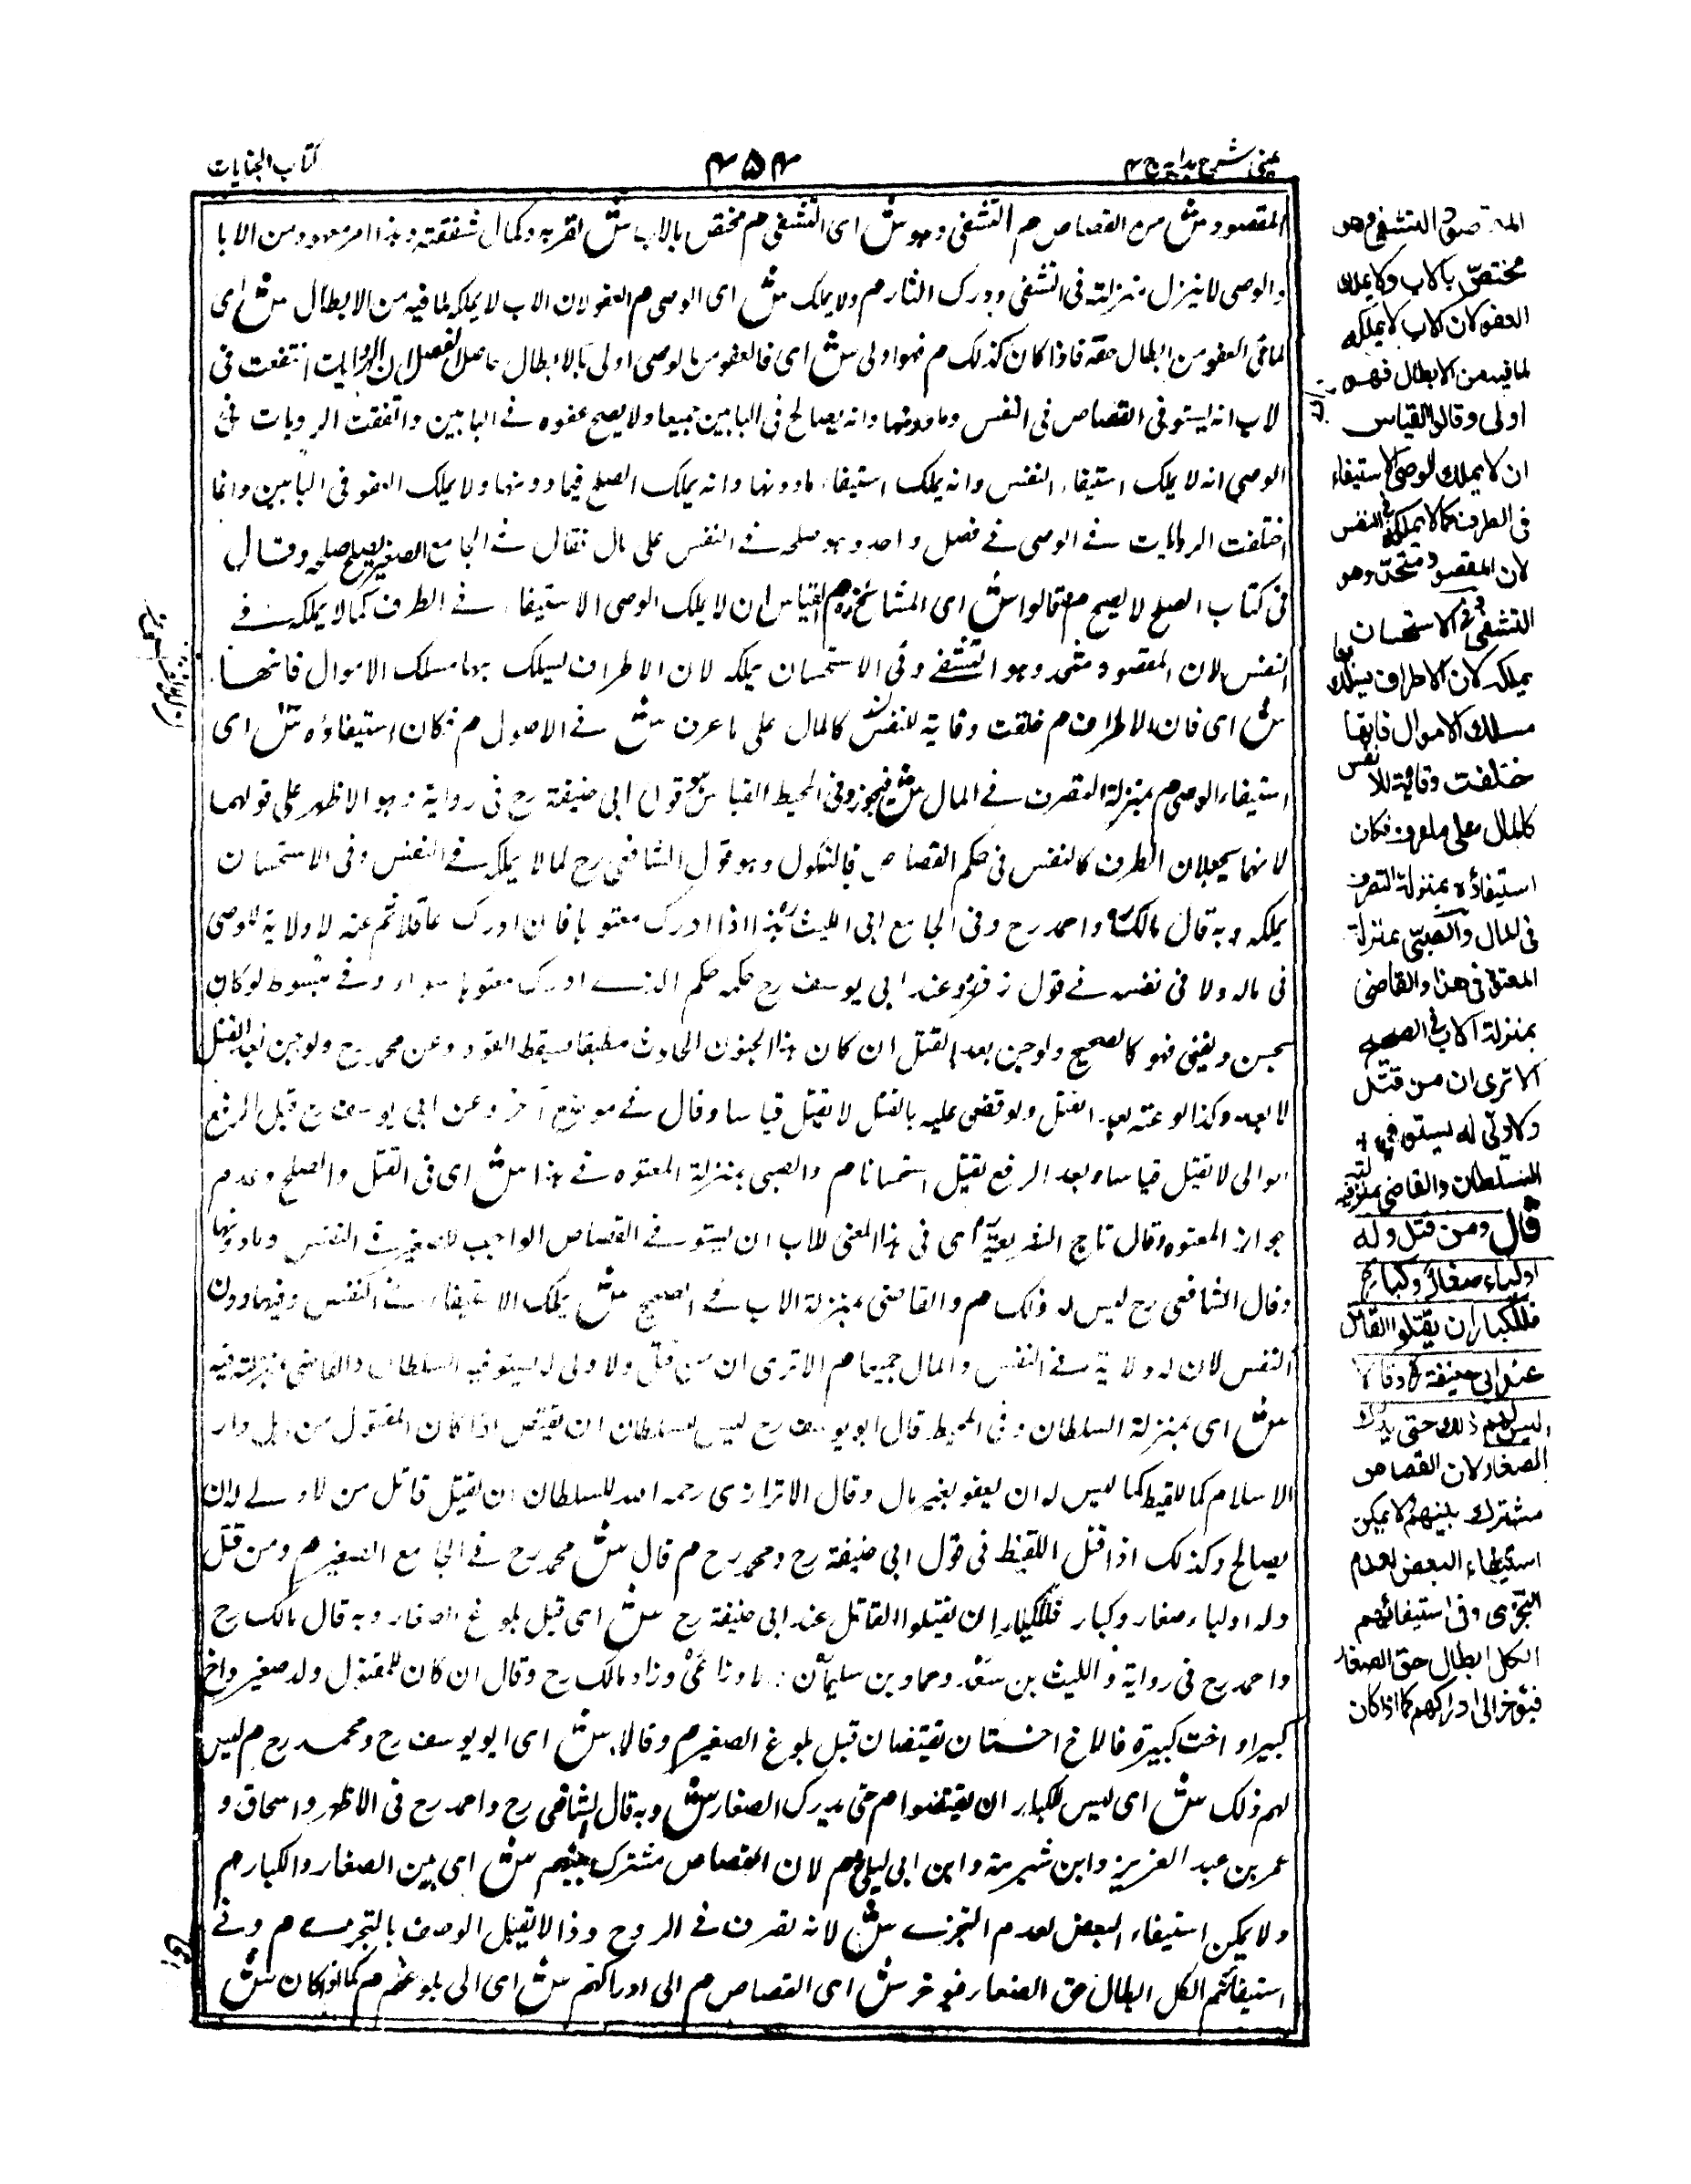 عینی شرح ہدایہ ج ۴
۴۵۴
کتاب الجنایات
المقصود ش من القصاص م التشفی وہو ش ای التشفی م مختص بالاب ش لقربہ وکمال شفقتہ وہذا امر معہود من الابا
والوصی لا ینزل منزلتہ فی التشفی ودرک الثار م ولا یملک ش ای الوصی م العفو لان الاب لا یملکہ لما فیہ من الابطال ش ای
لما فی العفو من ابطال حقہ فاذا کان کذلک م فہو اولی ش ای فالعفو من الوصی اولی بالابطال حاصل الفصل ان الروایات اتفقت فی
الاب انہ یستوفی القصاص فی النفس وما دونہا وانہ یصالح فی البابین جمیعا ولا یصح عفوہ فے البابین واتفقت الروایات فی
الوصی انہ لا یملک استیفاء النفس وانہ یملک استیفاء ما دونہا وانہ یملک الصلح فیما دونہا ولا یملک العفو فی البابین وانما
اختلفت الروایات فے الوصی فے فصل واحد وہو صلحہ فے النفس علی مال فقال فے الجامع الصغیر یصح صلحہ وقال
فی کتاب الصلح لا یصح م وقالوا ش ای المشائخ رہ م القیاس ان لا یملک الوصی الاستیفاء فے الطرف کما لا یملکہ فے
النفس لان المقصود متحد وہو التشفے وفی الاستحسان یملکہ لان الاطراف یسلک بہا مسلک الاموال فانہا
ش ای فان الاطراف م خلقت وقایة للانفس کالمال علی ما عرف ش فے الاصول م فکان استیفاؤہ ش ای
استیفاء الوصی م بمنزلة التصرف فے المال ش فیجوز وفی المحیط القیاس ہو قول ابی حنیفة رح فی روایة وہو الاظہر علی قولہما
لانہما یجعلان الطرف کالنفس فی حکم القصاص فی النکول وہو قول الشافعی رح لما لا یملکہ فے النفس وفی الاستحسان
یملکہ وبہ قال مالک رہ واحمد رح وفی الجامع ابی اللیث رہ ہذا اذا ادرک معتوہا فان ادرک عاقلا ثم عتہ لا ولایة للوصی
فی مالہ ولا فی نفسہ فے قول زفر رہ وعند ابی یوسف رح حکمہ حکم الذے ادرک معتوہا سواء وفے مبسوط لو کان
یجن ویفیق فہو کالصحیح ولو جن بعد القتل ان کان ہذا الجنون الحادث مطبقا سقط القود وعن محمد رح ولو جن بعد القتل
لا بعدہ وکذا لو عتہ بعد القتل ولو قضی علیہ بالقتل لا یقتل قیاسا وقال فے موضع آخر وعن ابی یوسف رح قبل الرفع
الوالی لا یقتل قیاسا وبعد الرفع یقتل استحسانا م والصبی بمنزلة المعتوہ فے ہذا ش ای فی القتل والصلح وعدم
جواز المعتوہ وقال تاج الشریعة ای فی ہذا المعنی للاب ان یستوفے القصاص الواجب للصغیر فے النفس وما دونہا
وقال الشافعی رح لیس لہ ذلک م والقاضی بمنزلة الاب فے الصحیح ش یملک الاستیفاء فے النفس وفیما دون
النفس لان لہ ولایة فے النفس والمال جمیعا م الا تری ان من قتل ولا ولی لہ یستوفیہ السلطان والقاضی بمنزلتہ فیہ
ش ای بمنزلة السلطان وفی المحیط قال ابو یوسف رح لیس للسلطان ان یقتص اذا کان المقتول من اہل دار
الاسلام کما للقیط کما لیس لہ ان یعفو بغیر مال وقال الاترازی رحمہ اللہ للسلطان ان یقتل قاتل من لا ولے لہ وان
یصالح وکذلک اذا قتل اللقیط فی قول ابی حنیفة رح ومحمد رح م قال ش محمد رح فے الجامع الصغیر م ومن قتل
ولہ اولیاء صغار وکبار فللکبار ان یقتلوا القاتل عند ابی حنیفة رح ش ای قبل بلوغ الصغار وبہ قال مالک رح
واحمد رح فی روایة واللیث بن سعد وحماد بن سلیمان والاوزاعی وزاد مالک رح وقال ان کان للمقتول ولد صغیر واخ
کبیر او اخت کبیرة فالاخ اختان یقتصان قبل بلوغ الصغیر م وقالا ش ای ابو یوسف رح ومحمد رح م لیس
لہم ذلک ش ای لیس للکبار ان یقتصوا م حتی یدرک الصغار ش وبہ قال الشافعی رح واحمد رح فی الاظہر واسحاق و
عمر بن عبد العزیز وابن شبرمة وابن ابی لیلی م لان القصاص مشترک بینہم ش ای بین الصغار والکبار م
ولا یمکن استیفاء البعض لعدم التجزے ش لانہ تصرف فے الروح وذا لا یقبل الوصف بالتجزے م وفے
استیفائہم الکل ابطال حق الصغار فیوخر ش ای القصاص م الی ادراکہم ش ای الی بلوغہم م کما اذا کان ش
المقصود التشفی وهو
مختص بالاب ولا یملك
العفو لان الاب لا یملکه
لما فیه من الابطال فهو
اولی وقالوا القیاس
ان لا یملك الوصی الاستیفاء
فی الطرف کما لا یملکه فی النفس
لان المقصود متحد وهو
التشفی وفی الاستحسان
یملکه لان الاطراف یسلك بها
مسلك الاموال فانها
خلقت وقایة للانفس
کالمال علی ما عرف فکان
استیفاؤه بمنزلة التصرف
فی المال والصبی بمنزلة
المعتوه فی هذا والقاضی
بمنزلة الاب فی الصحیح
الا تری ان من قتل
ولا ولی له یستوفیه
السلطان والقاضی بمنزلته فیه
قال ومن قتل وله
اولیاء صغار وکبار
فللکبار ان یقتلوا القاتل
عند ابی حنیفة رح وقالا
لیس لهم ذلك حتی یدرك
الصغار لان القصاص
مشترك بینهم ولا یمکن
استیفاء البعض لعدم
التجزی وفی استیفائهم
الکل ابطال حق الصغار
فیؤخر الی ادراکهم کما اذا کان